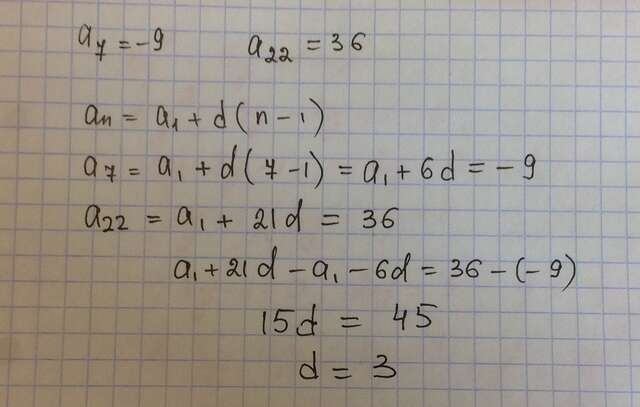 a₇ = -9 a₂₂ = 36
aₙ = a₁ + d(n - 1)
a₇ = a₁ + d(7 - 1) = a₁ + 6d = -9
a₂₂ = a₁ + 21d = 36
a₁ + 21d - a₁ - 6d = 36 - (-9)
15d = 45
d = 3